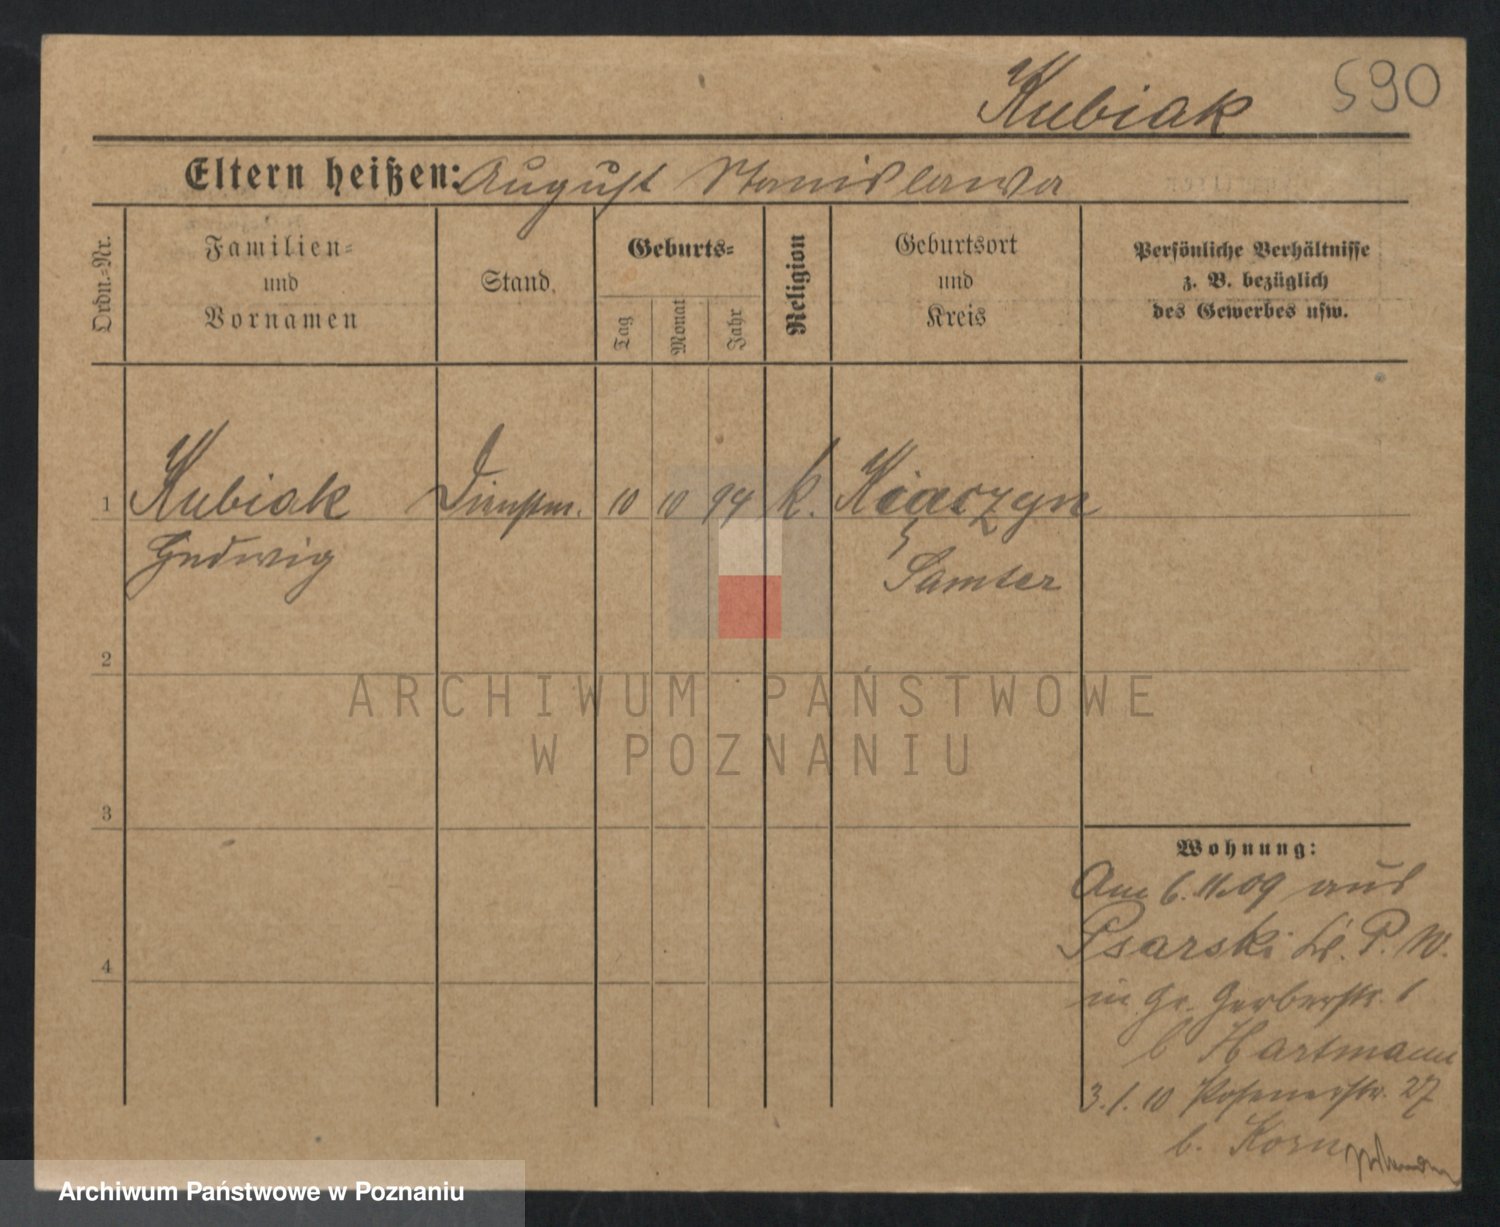 Kubiak 590
Eltern heißen: August Stanislawa
Ordn.-Nr.
Familien-
und
Vornamen
Stand.
Geburts-
Tag
Monat
Jahr
Religion
Geburtsort
und
Kreis
Persönliche Verhältnisse
z. B. bezüglich
des Gewerbes usw.
1 Kubiak Dienstm. 10 10 94 k.
Hedwig Samter
2
3
4
Wohnung:
Am 6.11.09 aus
Psarski Kr. P. W.
in Gr. Gerberstr. 1
b Hartmann
3.1.10 Posenerstr. 27
b. Korn
ARCHIWUM PAŃSTWOWE
W POZNANIU
Archiwum Państwowe w Poznaniu